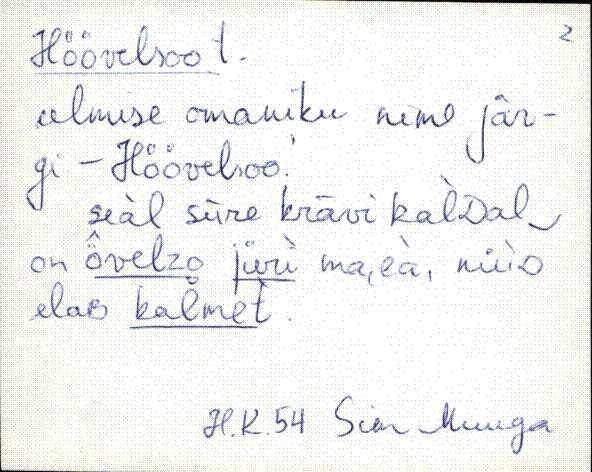 2
Höövelsoo t.
eelmise omaniku nime jär-
gi – Höövelsoo.
seàl sūre krāvi kalDal
on ȭvelzo jüri ma,eà, nüùD
elaB kalmèt.
H.K. 54 Siim Muuga